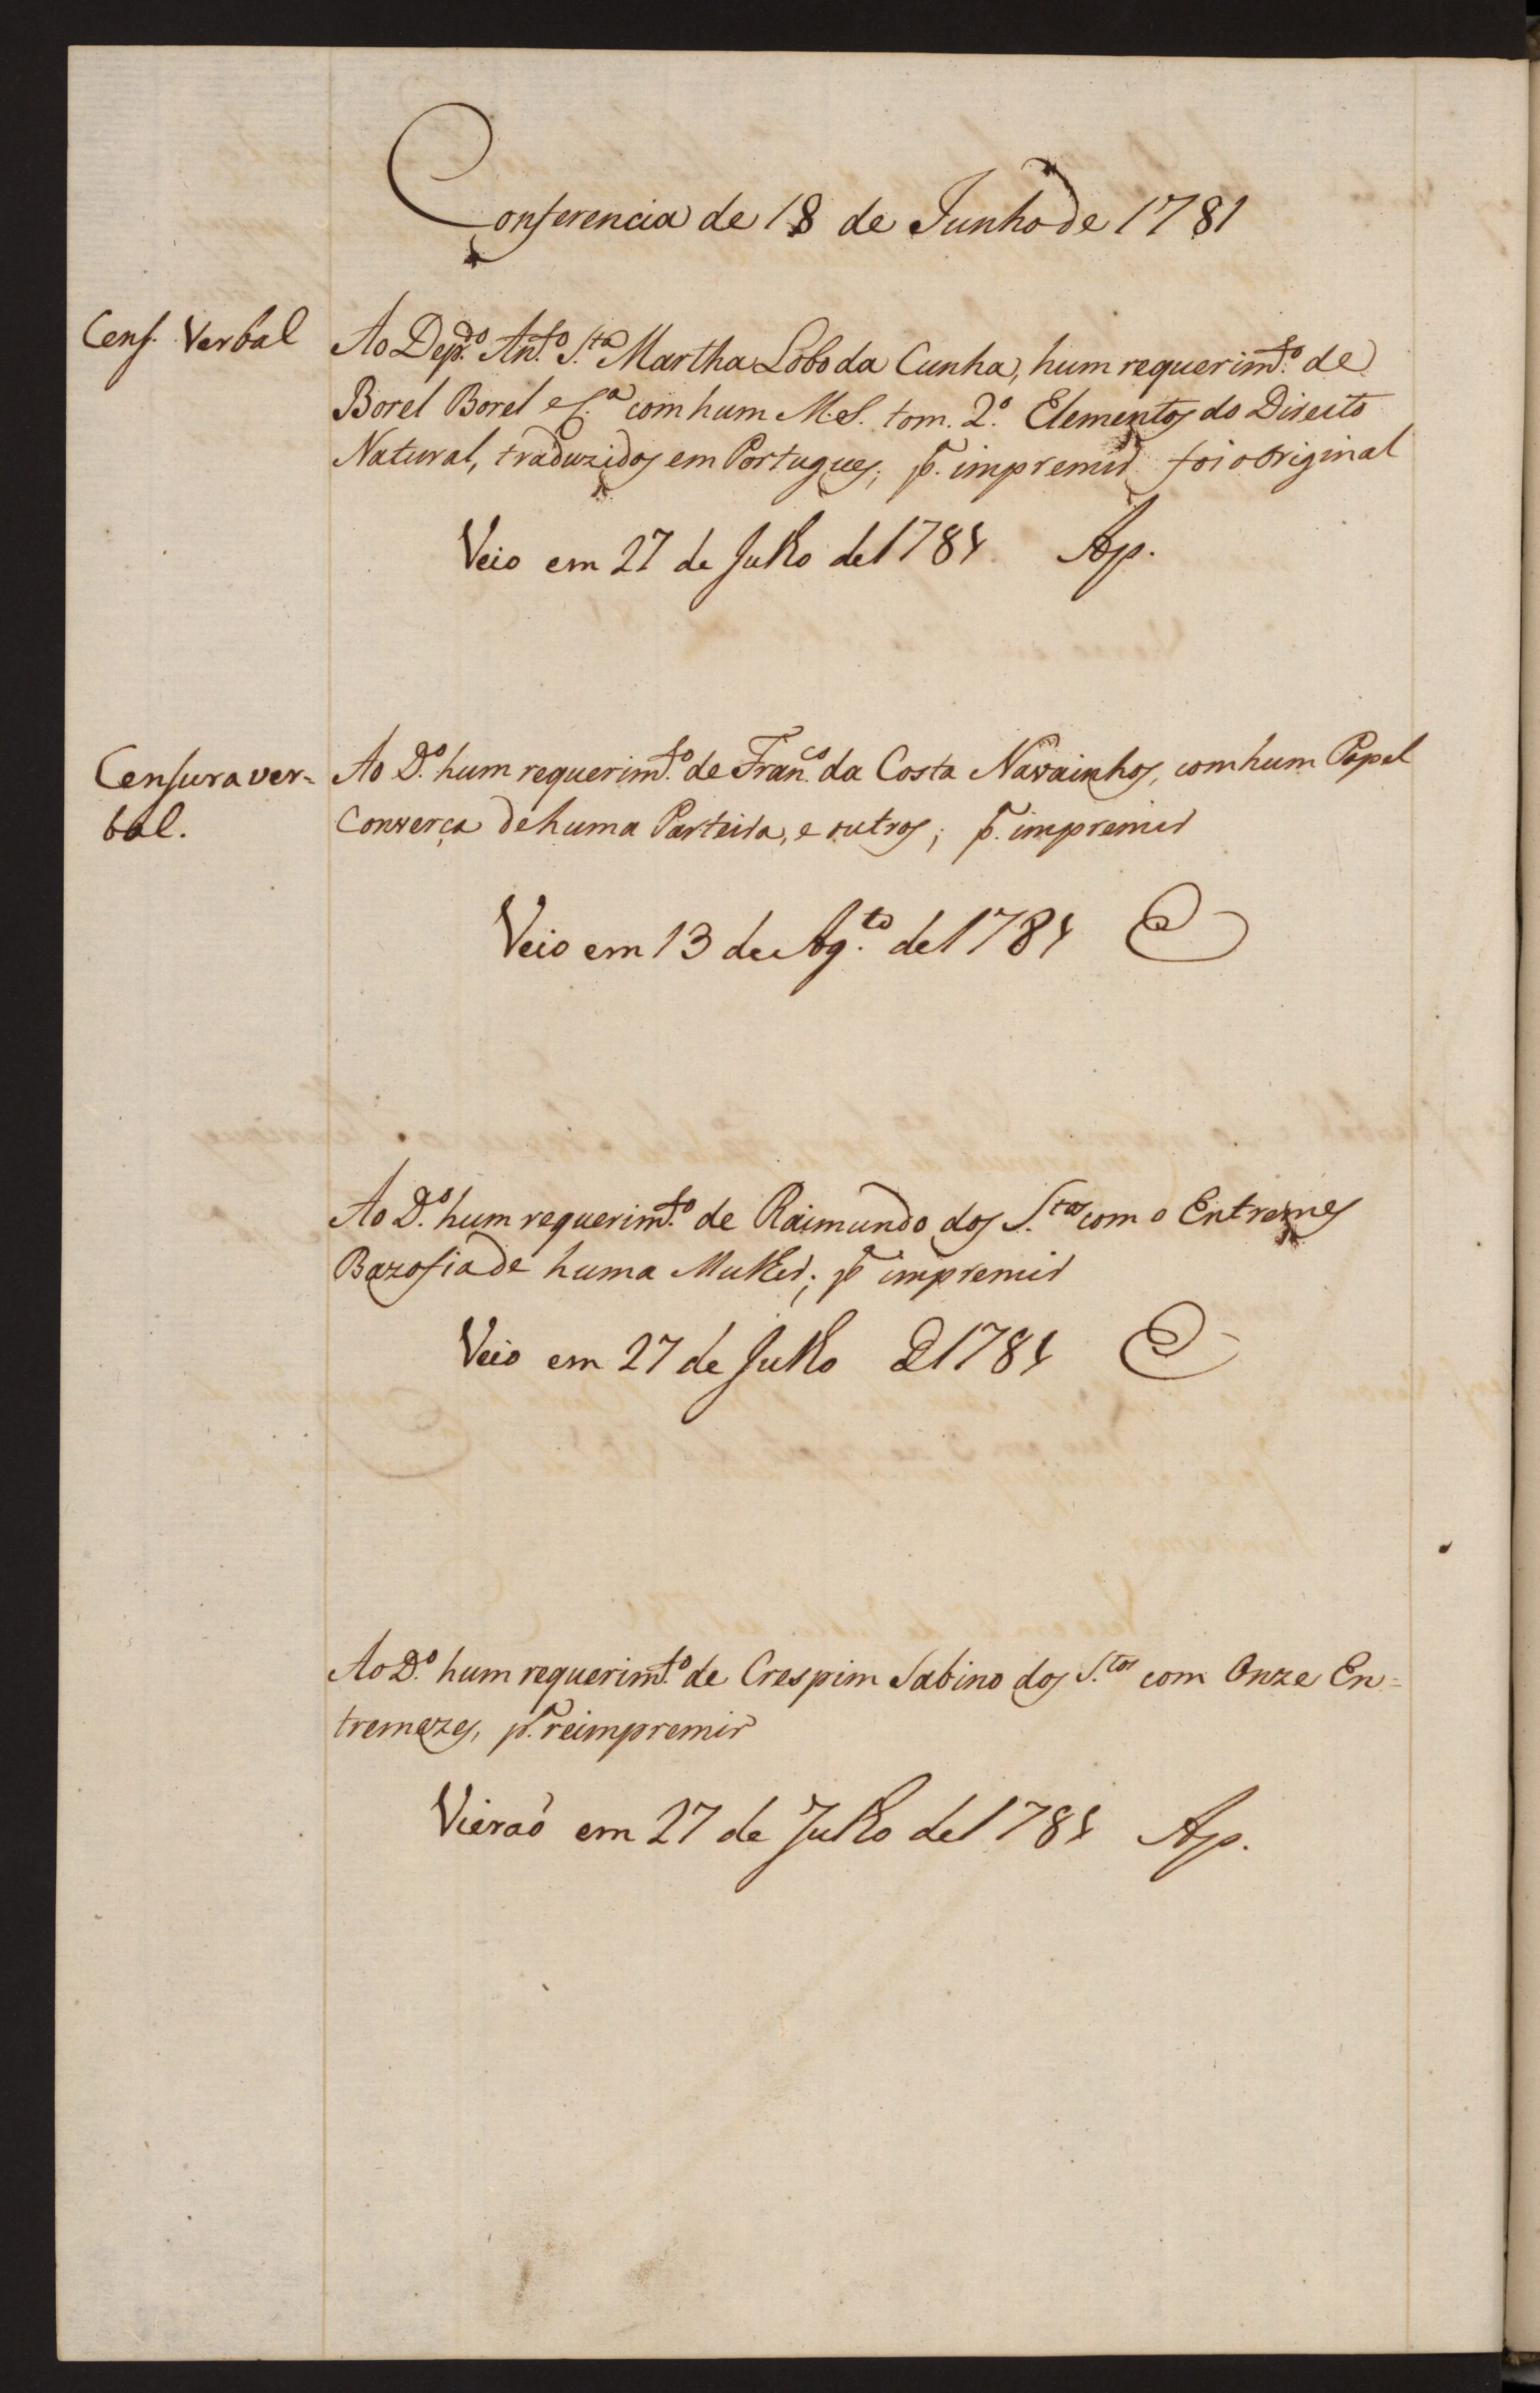 Conferencia de 18 de Junho de 1781
Cens. Verbal
Ao Dep.do An.to S.ta Martha Lobo da Cunha, hum requerim.to de
Borel Borel e C.a com hum M.S. tom. 2.o Elementos do Direito
Natural, traduzidos em Portugues; p.a impremir foi o original
Veio em 27 de Julho de 1781 Ap.
Censura ver=
bal.
Ao D.o hum requerim.to de Fran.co da Costa Navainhos, com hum Papel
Converça de huma Parteira, e outros; p.a impremir
Veio em 13 de Ag.to de 1781
Ao D.o hum requerim.to de Raimundo dos S.tos com o Entremes
Bazofia de huma Mulher; p.a impremir
Veio em 27 de Julho D 1781
Ao D.o hum requerim.to de Crespim Sabino dos S.tos com Onze En=
tremezes, p.a reimpremir
Vierão em 27 de Julho de 1781 Ap.